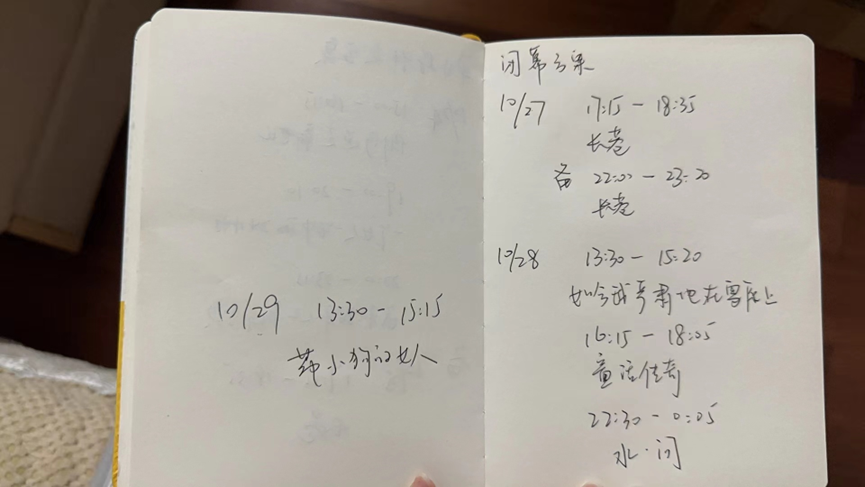 10/29 13:30 - 15:15
带小狗的女人
闭幕方案
10/27 17:15 - 18:35
长巷
备 22:00 - 23:20
长巷
10/28 13:30 - 15:20
如今我严肃地在雪底上
16:15 - 18:05
童话传奇
22:30 - 0:05
水·问